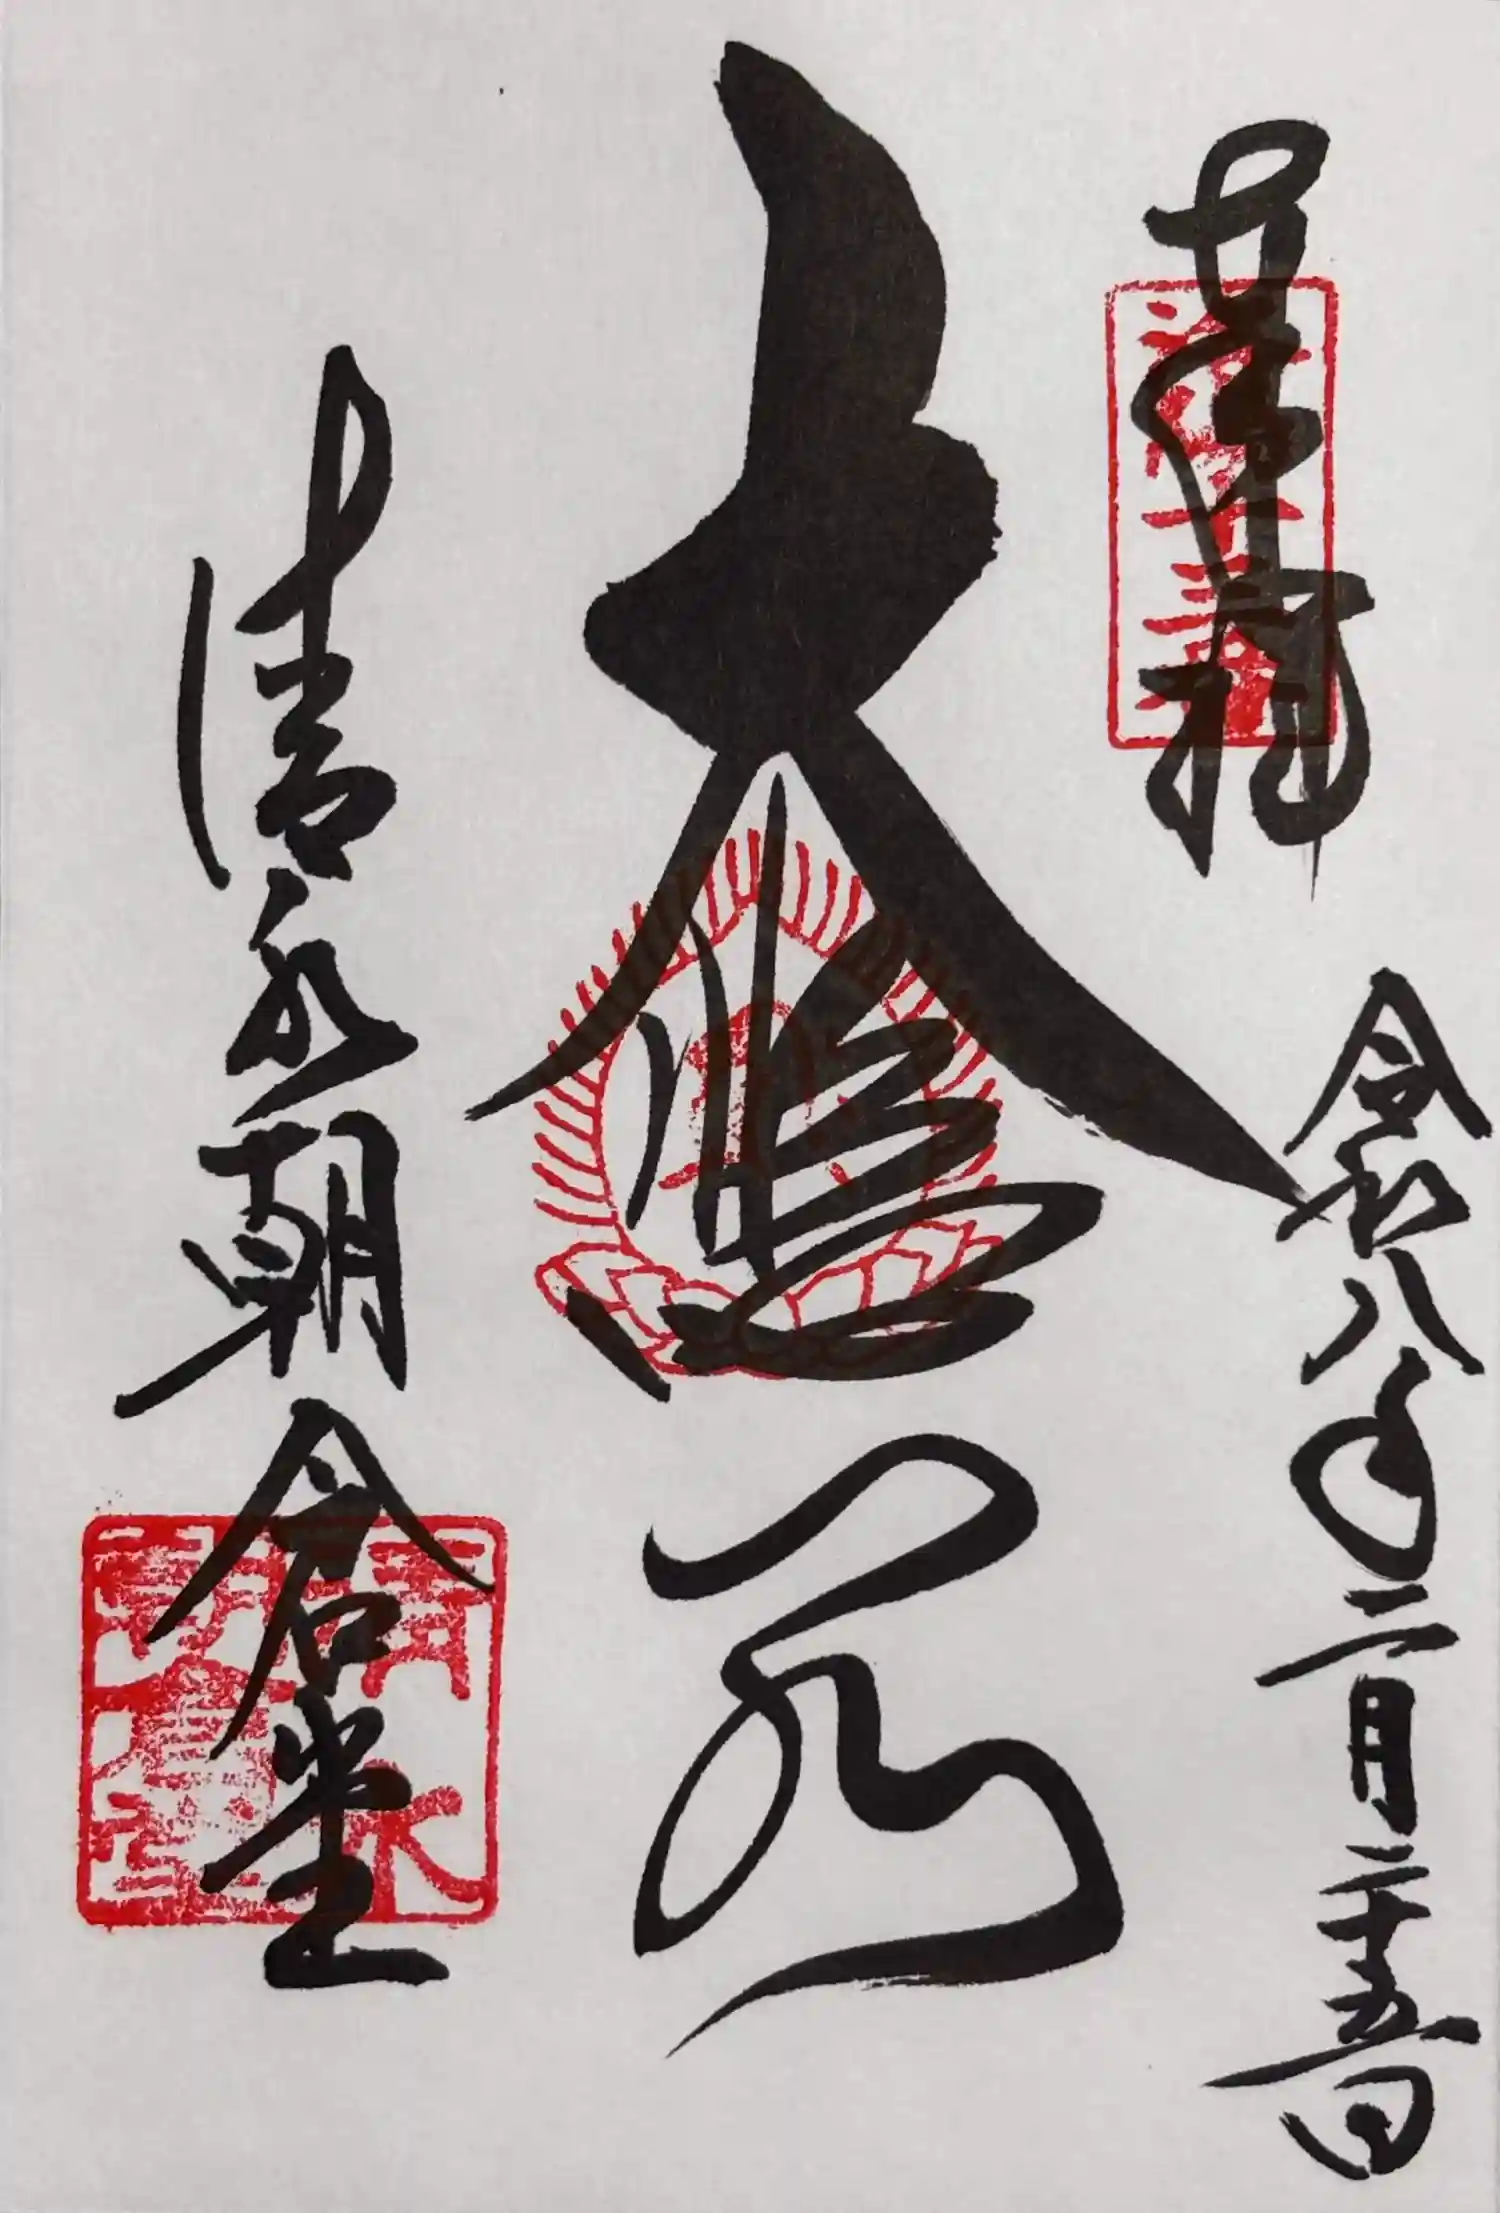 奉拝
洛陽十三番
令和八年二月二十五日
大悲閣
清水朝倉堂
清水
朝倉堂